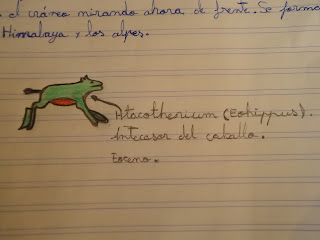 el cráneo mirando ahora de frente. Se forma
Himalaya y los alpes.
Atacotherium (Eohippus).
Antecasor del caballo.
Eoceno.